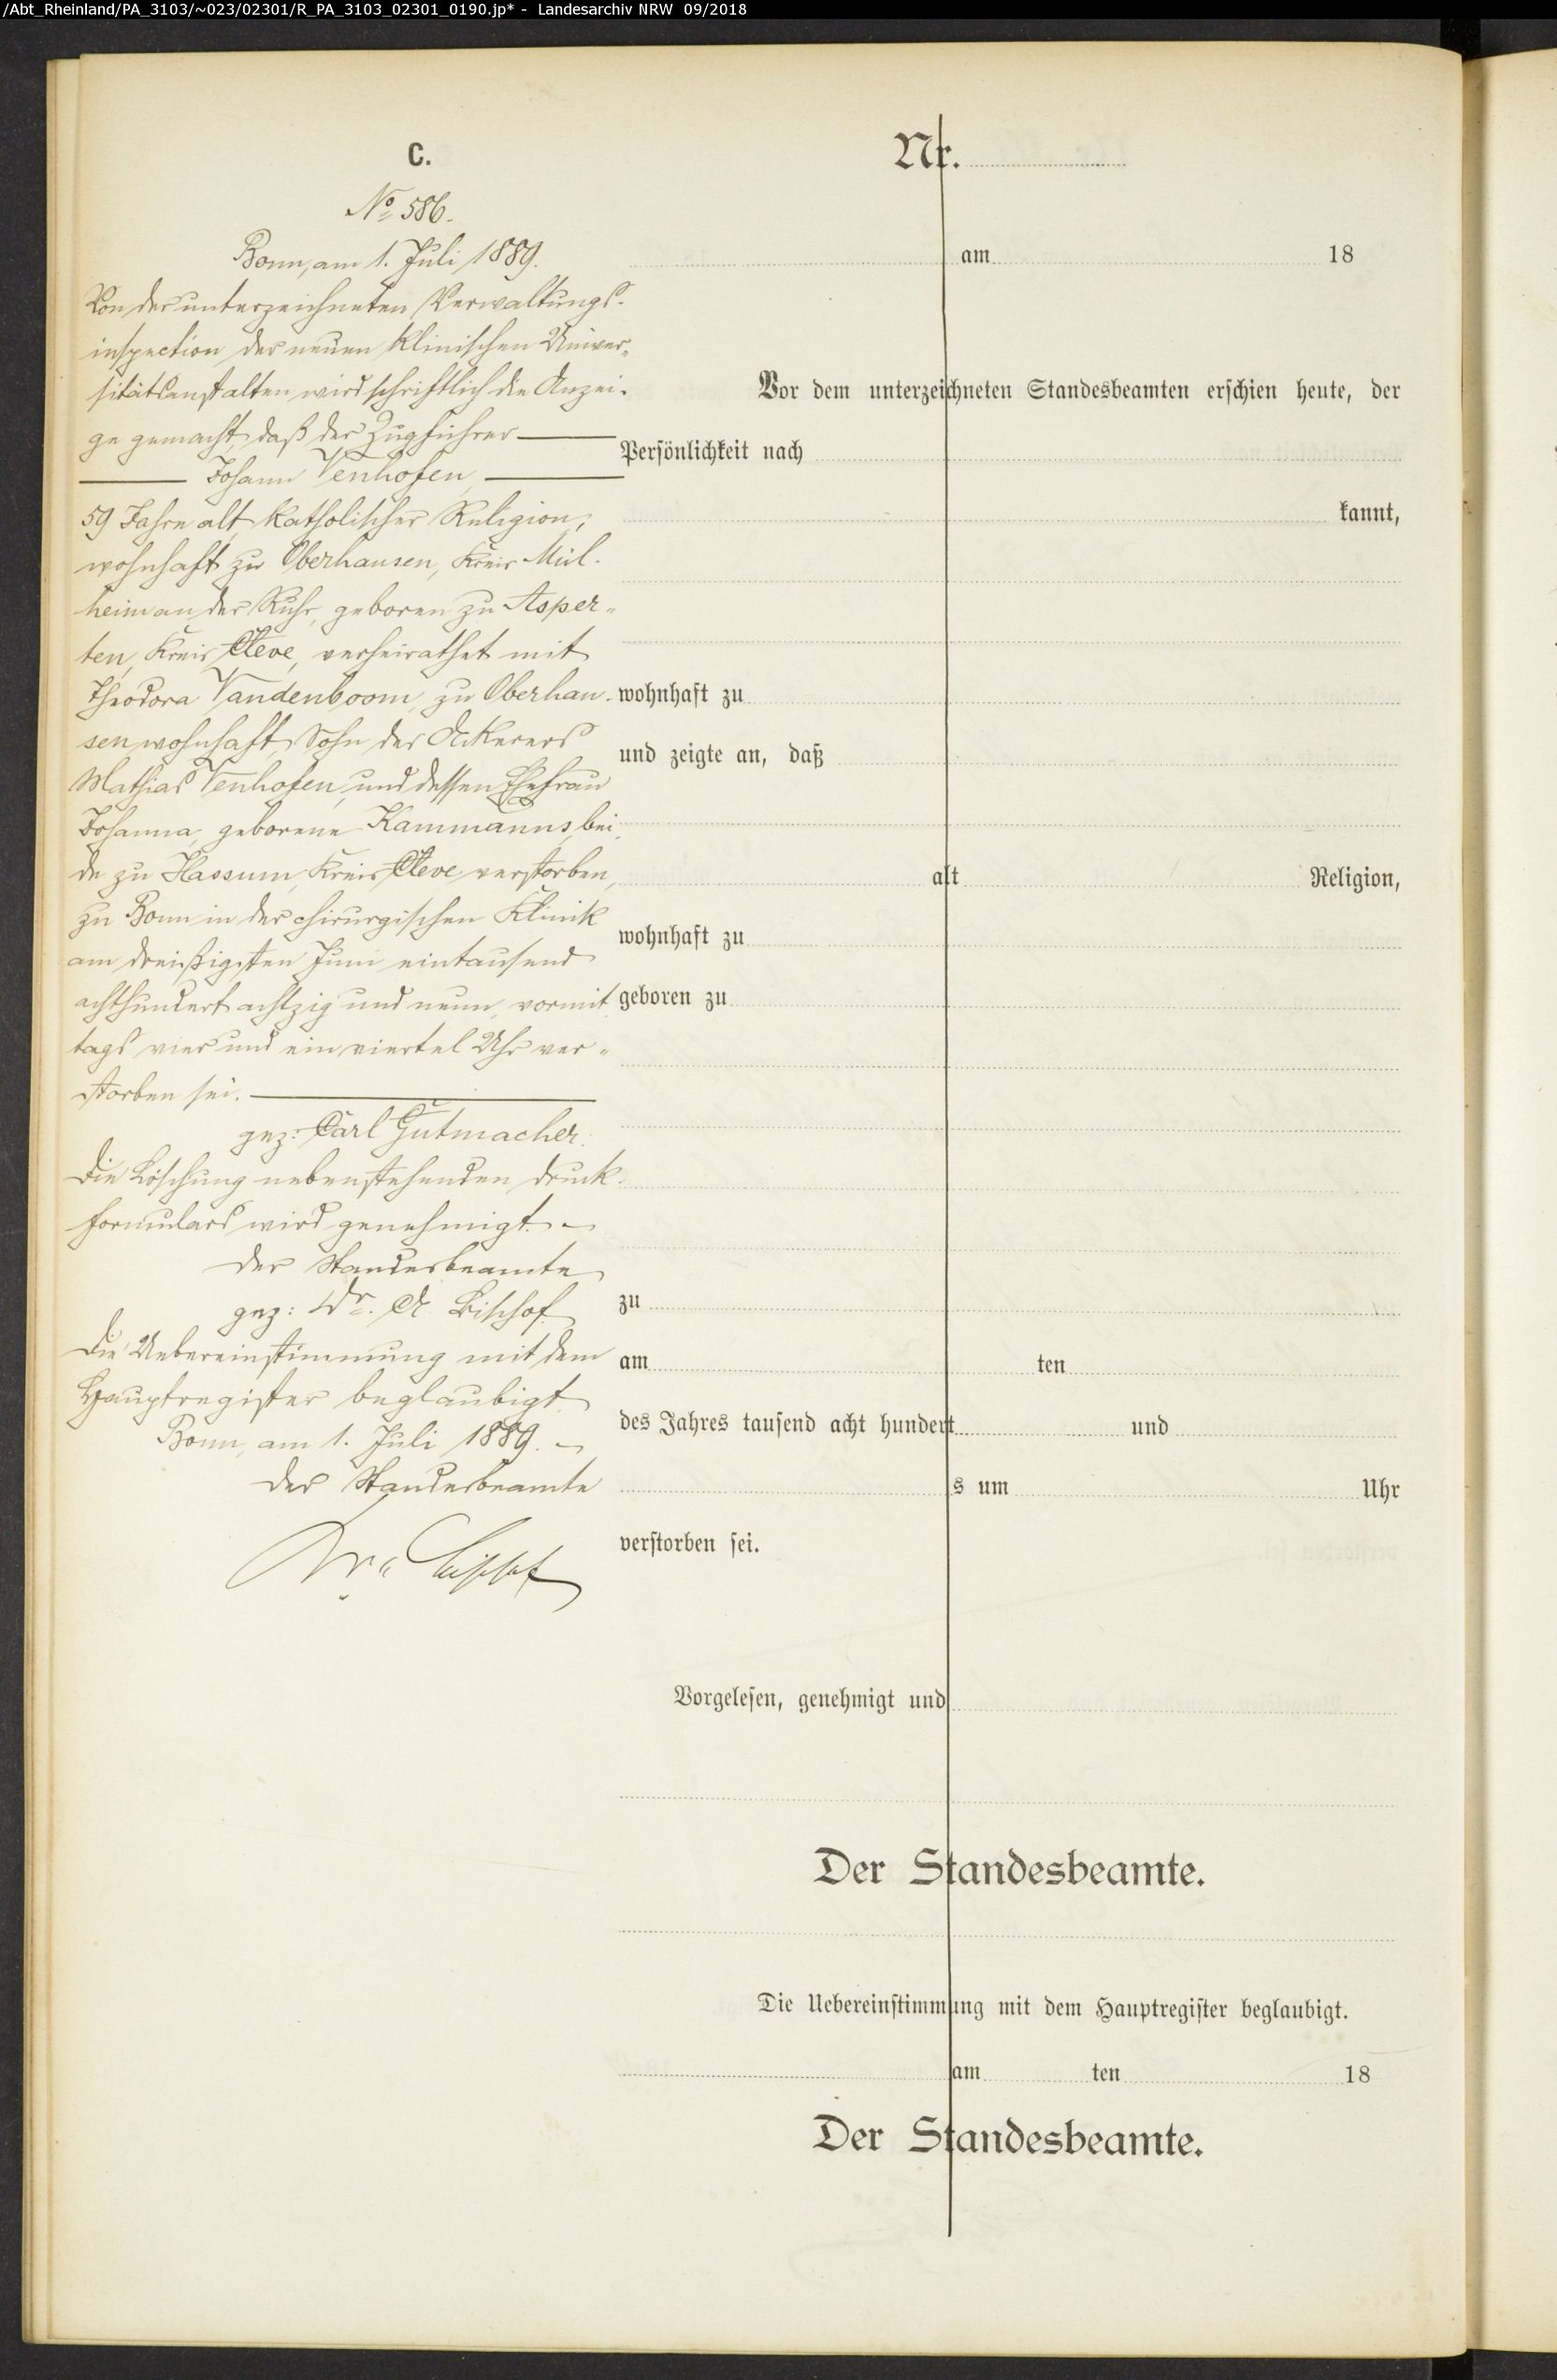 /Abt_Rheinland/PA_3103/~023/02301/R_PA_3103_02301_0190.jp* - Landesarchiv NRW 09/2018
C.
No 586.
Bonn, am 1. Juli 1889.
Von der unterzeichneten Verwaltungs-
inspection der neuen klinischen Univer-
sitätsanstalten wird schriftlich die Anzei-
ge gemacht, daß der Zugführer
Johann Venhofen,
59 Jahre alt, katholischer Religion,
wohnhaft zu Oberhausen, Kreis Mül-
heim an der Ruhr, geboren zu Asper-
ten, Kreis Cleve, verheirathet mit
Theodora Vandenboom, zu Oberhau-
sen wohnhaft, Sohn des Ackerers
Mathias Venhofen, und dessen Ehefrau
Johanna, geborene Kammanns, bei-
de zu Hassum, Kreis Cleve verstorben,
zu Bonn in der chirurgischen Klinik
am dreißigsten Juni eintausend
achthundert achtzig und neun, vormit-
tags vier und ein viertel Uhr ver-
storben sei.
gez: Carl Gutmacher.
Die Löschung nebenstehenden Druck-
formulars wird genehmigt.
Der Standesbeamte
gez: Dr. A. Bischof
Die Uebereinstimmung mit dem
Hauptregister beglaubigt
Bonn, am 1. Juli 1889.
Der Standesbeamte
Dr.
Nr.
am 18
Vor dem unterzeichneten Standesbeamten erschien heute, der
Persönlichkeit nach
kannt,
wohnhaft zu
und zeigte an, daß
alt Religion,
wohnhaft zu
geboren zu
zu
am ten
des Jahres tausend acht hundert und
s um Uhr
verstorben sei.
Vorgelesen, genehmigt und
Der Standesbeamte.
Die Uebereinstimmung mit dem Hauptregister beglaubigt.
am ten 18
Der Standesbeamte.